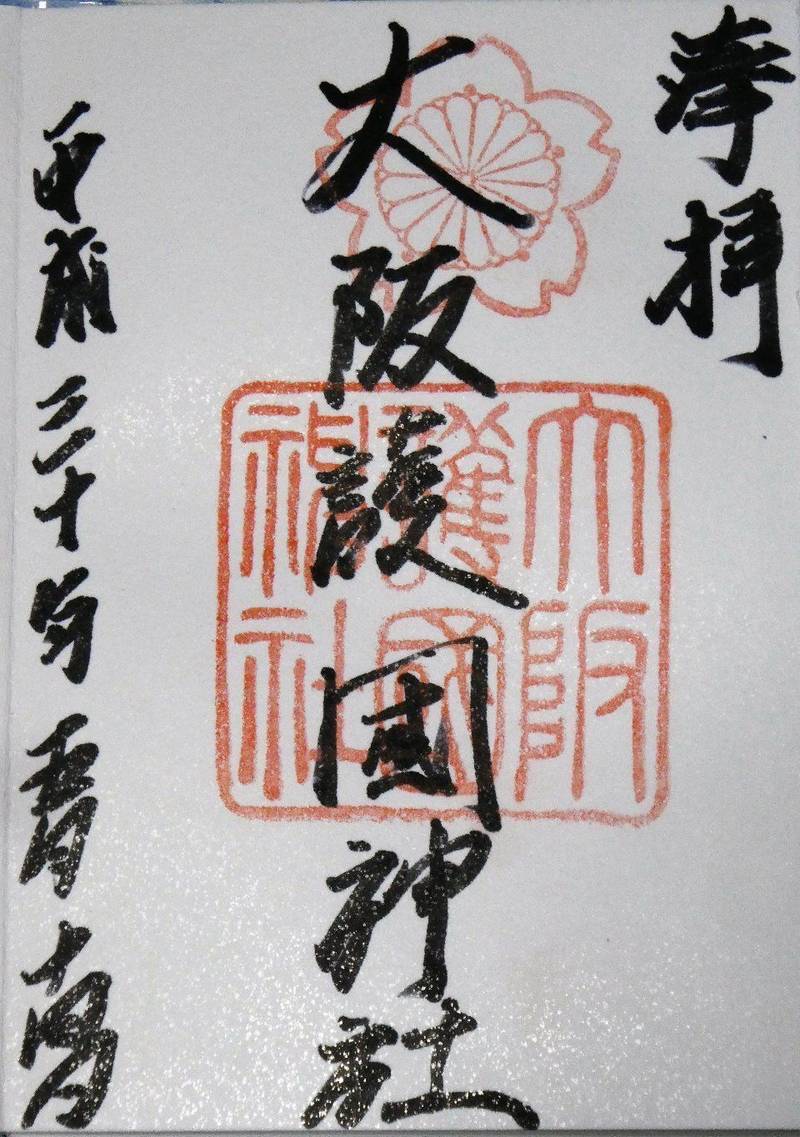 奉拝
大阪護國神社
大阪
護國
神社
平成三十年五月